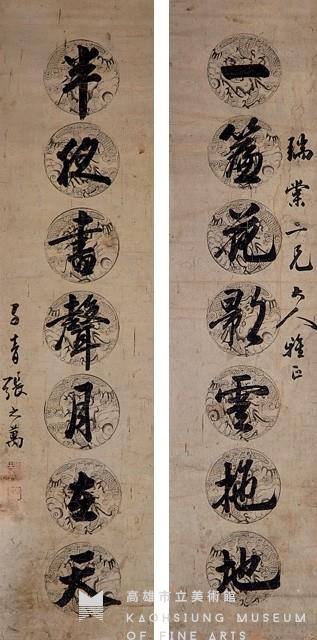 瑞 二兄大人雅正
一簾花影雲拖地
半夜書聲月在天
子青張之萬
高雄市立美術館
KAOHSIUNG MUSEUM
OF FINE ARTS